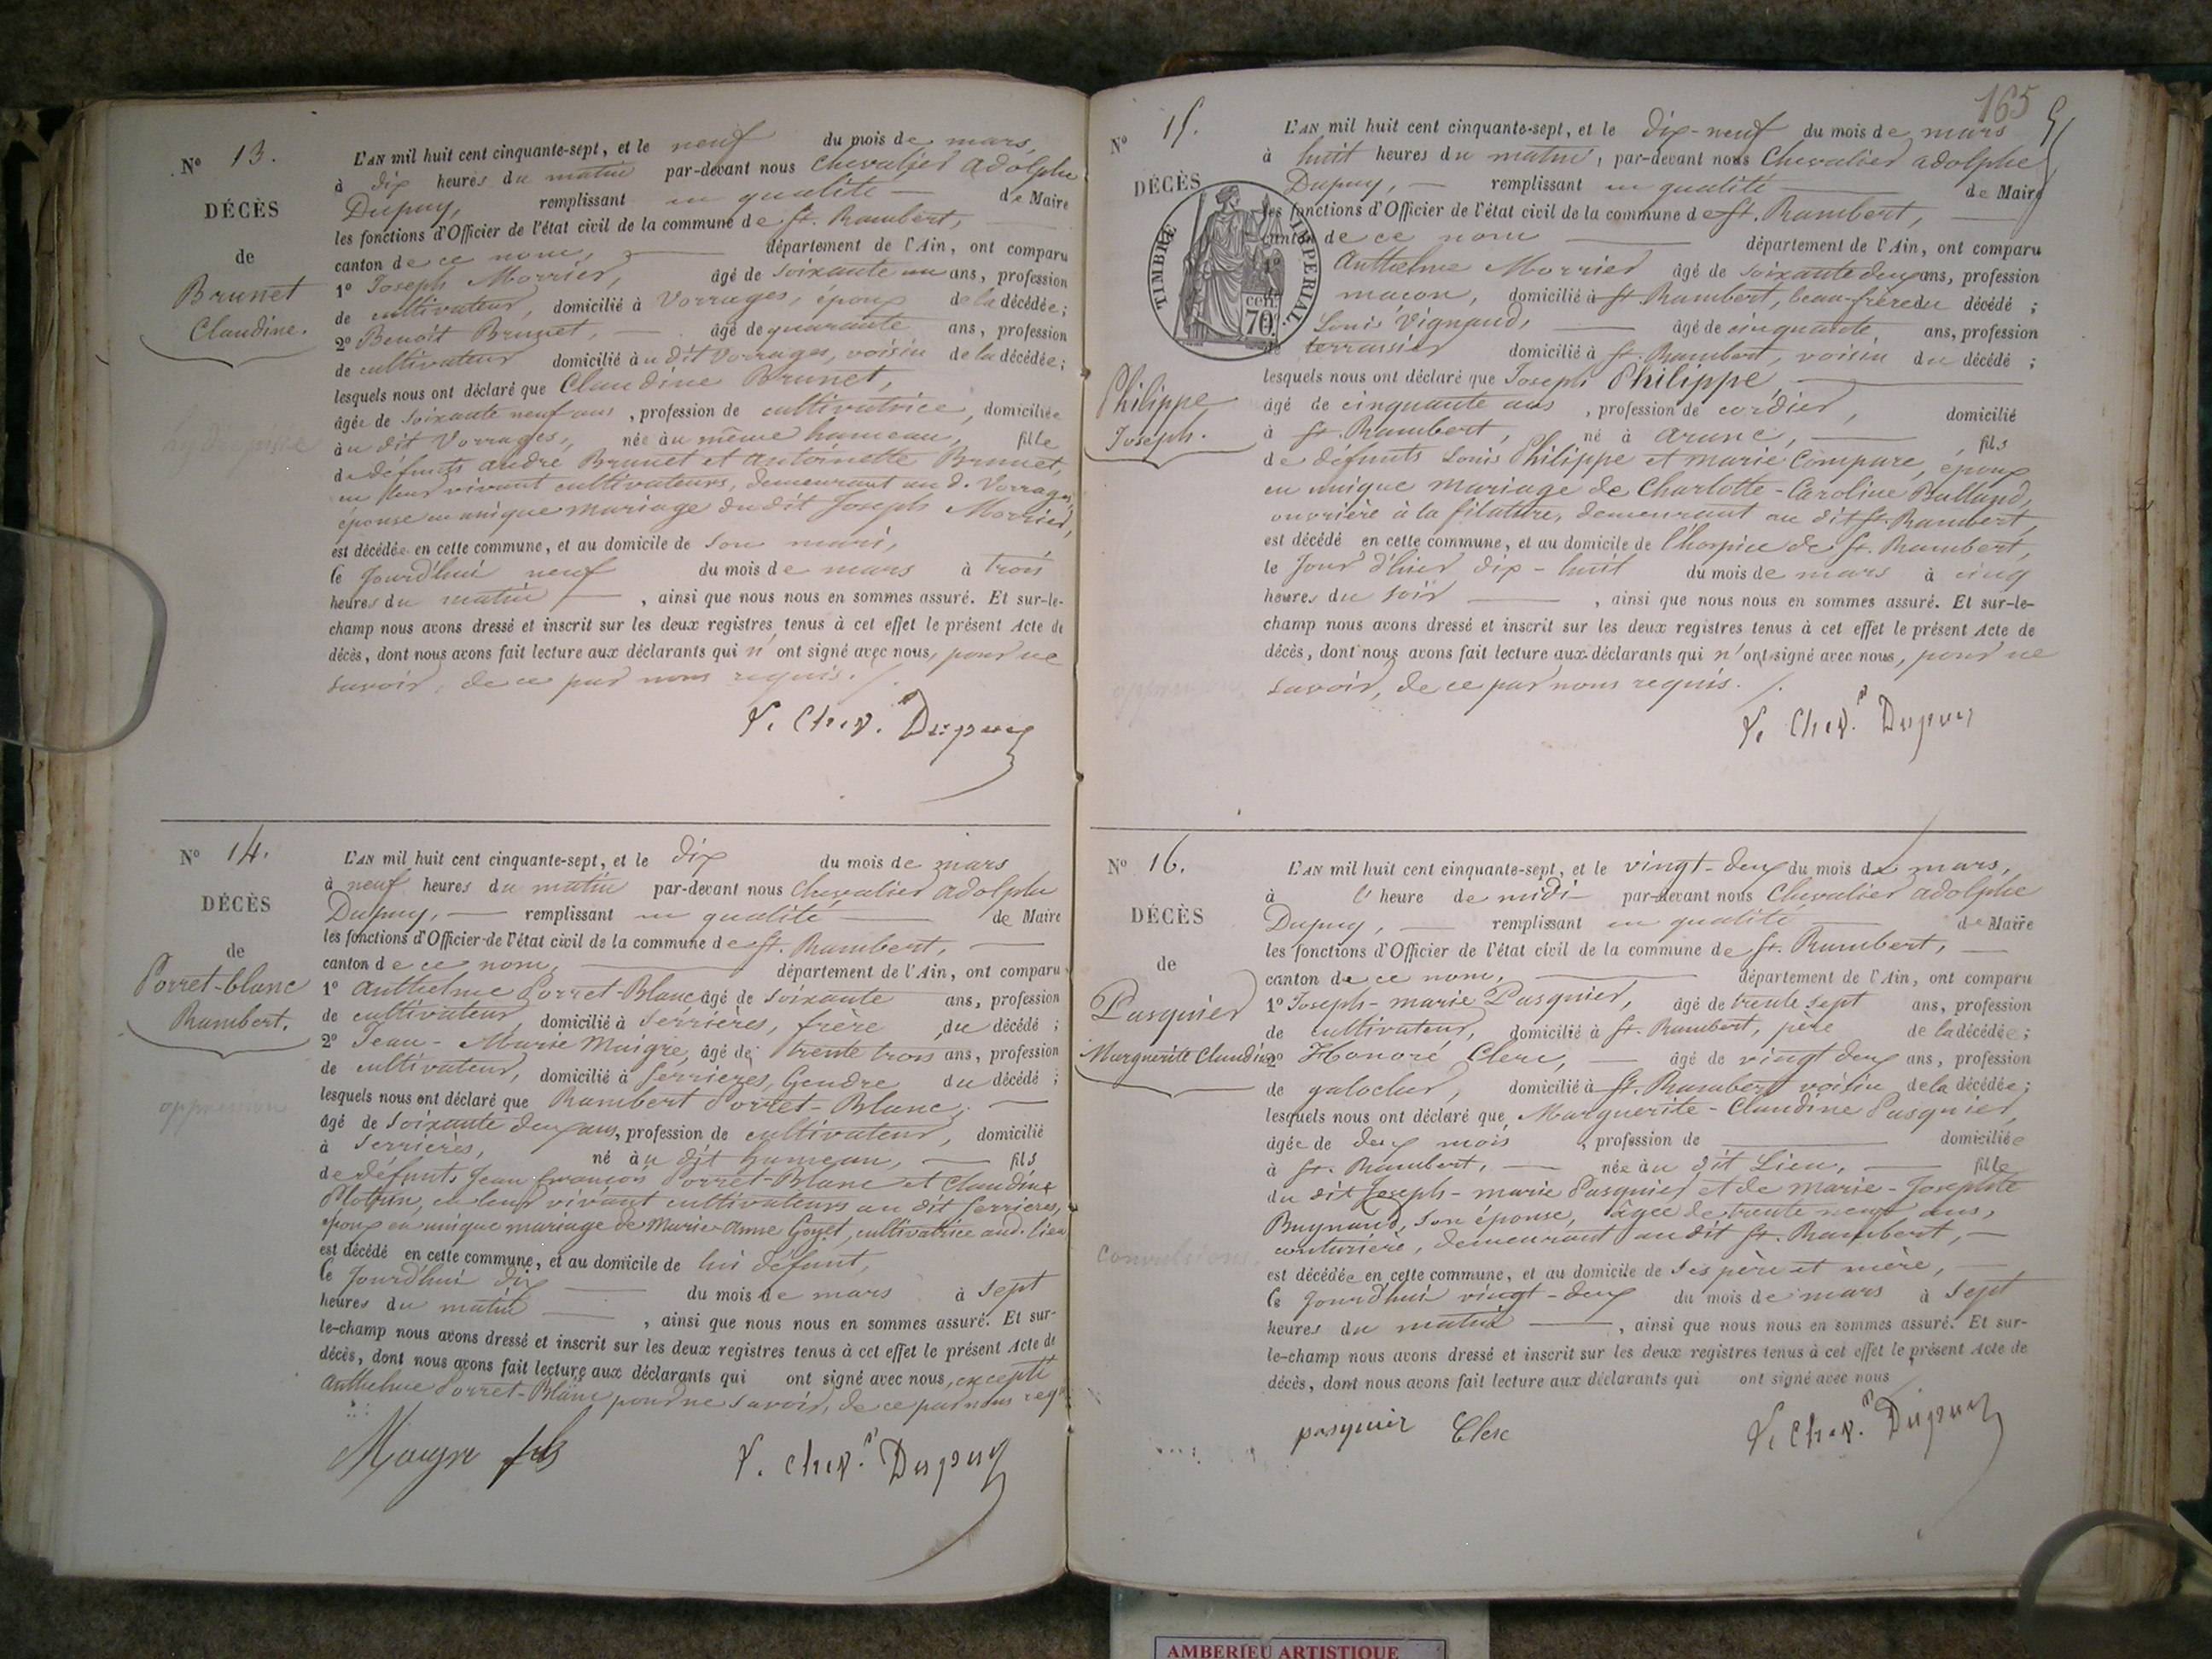 N° 13.
DÉCÈS
de
Brunet
Claudine.
hydropisie
L'AN mil huit cent cinquante-sept, et le neuf du mois de mars,
à dix heures du matin par-devant nous Chevalier adolphe
Dupuy, remplissant en qualité de Maire
les fonctions d'Officier de l'état civil de la commune de St. Rambert,
canton de ce nom, département de l'Ain, ont comparu
1° Joseph Morrier, âgé de soixante un ans, profession
de cultivateur, domicilié à Vorages, époux de la décédée;
2° Benoit Brunet, âgé de quarante ans, profession
de cultivateur domicilié à u dit Vorages, voisin de la décédée;
lesquels nous ont déclaré que Claudine Brunet,
âgée de soixante neuf ans, profession de cultivatrice, domiciliée
à u dit Vorages, née à u même hameau, fille
de défunts andré Brunet et antoinette Brunet,
en leur vivant cultivateurs, demeurant au d. Vorages,
épouse en unique mariage du dit Joseph Morrier,
est décédée en cette commune, et au domicile de son mari,
le jourd'hui neuf du mois de mars à trois
heures du matin, ainsi que nous nous en sommes assuré. Et sur-le-
champ nous avons dressé et inscrit sur les deux registres tenus à cet effet le présent Acte de
décès, dont nous avons fait lecture aux déclarants qui n'ont signé avec nous, pour ne
savoir, de ce par nous requis.
Chev. Dupuy
N° 14.
DÉCÈS
de
Porret-blanc
Rambert.
oppression
L'AN mil huit cent cinquante-sept, et le dix du mois de mars
à neuf heures du matin par-devant nous Chevalier adolphe
Dupuy, remplissant en qualité de Maire
les fonctions d'Officier de l'état civil de la commune de St. Rambert,
canton de ce nom, département de l'Ain, ont comparu
1° anthelme Porret-Blanc âgé de soixante ans, profession
de cultivateur, domicilié à Serrières, frère du décédé;
2° Jean-Marie Maigre, âgé de trente trois ans, profession
de cultivateur, domicilié à Serrières, Gendre du décédé;
lesquels nous ont déclaré que Rambert Porret-Blanc,
âgé de soixante deux ans, profession de cultivateur, domicilié
à Serrières, né à u dit hameau, fils
de défunts Jean françois Porret-Blanc et Claudine
en leur vivant cultivateurs au dit Serrières,
époux en unique mariage de Marie-Anne Goyet, cultivatrice aud. lieu
est décédé en cette commune, et au domicile de lui défunt,
le jourd'hui dix du mois de mars à sept
heures du matin, ainsi que nous nous en sommes assuré. Et sur-
le-champ nous avons dressé et inscrit sur les deux registres tenus à cet effet le présent Acte de
décès, dont nous avons fait lecture aux déclarants qui ont signé avec nous, excepté
anthelme Porret-Blanc pour ne savoir, de ce par nous req.
Maigre fils Chev. Dupuy
165
N° 15.
DÉCÈS
TIMBRE IMPÉRIAL.
70 cen.
Philippe
Joseph.
oppression
L'AN mil huit cent cinquante-sept, et le dix-neuf du mois de mars
à huit heures du matin, par-devant nous Chevalier adolphe
Dupuy, remplissant en qualité de Maire
les fonctions d'Officier de l'état civil de la commune de St. Rambert,
canton de ce nom département de l'Ain, ont comparu
Anthelme Morrier âgé de soixante deux ans, profession
maçon, domicilié à St. Rambert, beau-frère du décédé;
Louis Vignand, âgé de cinquante ans, profession
de terrassier domicilié à St. Rambert, voisin du décédé;
lesquels nous ont déclaré que Joseph Philippe,
âgé de cinquante ans, profession de cordier, domicilié
à St. Rambert, né à aranc, fils
de défunts Louis Philippe et marie Compare, époux
en unique mariage de Charlotte-Caroline Balland,
ouvrière à la filature, demeurant au dit St. Rambert,
est décédé en cette commune, et au domicile de l'hospice de St. Rambert,
le jour d'hier dix-huit du mois de mars à cinq
heures du soir, ainsi que nous nous en sommes assuré. Et sur-le-
champ nous avons dressé et inscrit sur les deux registres tenus à cet effet le présent Acte de
décès, dont nous avons fait lecture aux déclarants qui n'ont signé avec nous, pour ne
savoir, de ce par nous requis.
Chev. Dupuy
N° 16.
DÉCÈS
de
Pasquier
Marguerite Claudine
Convulsions.
L'AN mil huit cent cinquante-sept, et le vingt-deux du mois de mars,
à l'heure de midi par-devant nous Chevalier adolphe
Dupuy, remplissant en qualité de Maire
les fonctions d'Officier de l'état civil de la commune de St. Rambert,
canton de ce nom, département de l'Ain, ont comparu
1° Joseph-marie Pasquier, âgé de trente sept ans, profession
de cultivateur, domicilié à St. Rambert, père de la décédée;
2° Honoré Clerc, âgé de vingt deux ans, profession
de galochier, domicilié à St. Rambert voisin de la décédée;
lesquels nous ont déclaré que Marguerite-Claudine Pasquier,
âgée de deux mois, profession de domiciliée
à St. Rambert, née à u dit Lieu, fille
du dit Joseph-marie Pasquier et de marie-Josephte
Bugnand, son épouse, âgée de trente neuf ans,
couturière, demeurant au dit St. Rambert,
est décédée en cette commune, et au domicile de ses père et mère,
le jourd'hui vingt-deux du mois de mars à sept
heures du matin, ainsi que nous nous en sommes assuré. Et sur-
le-champ nous avons dressé et inscrit sur les deux registres tenus à cet effet le présent Acte de
décès, dont nous avons fait lecture aux déclarants qui ont signé avec nous
pasquier Clerc Chev. Dupuy
AMBERIEU ARTISTIQUE